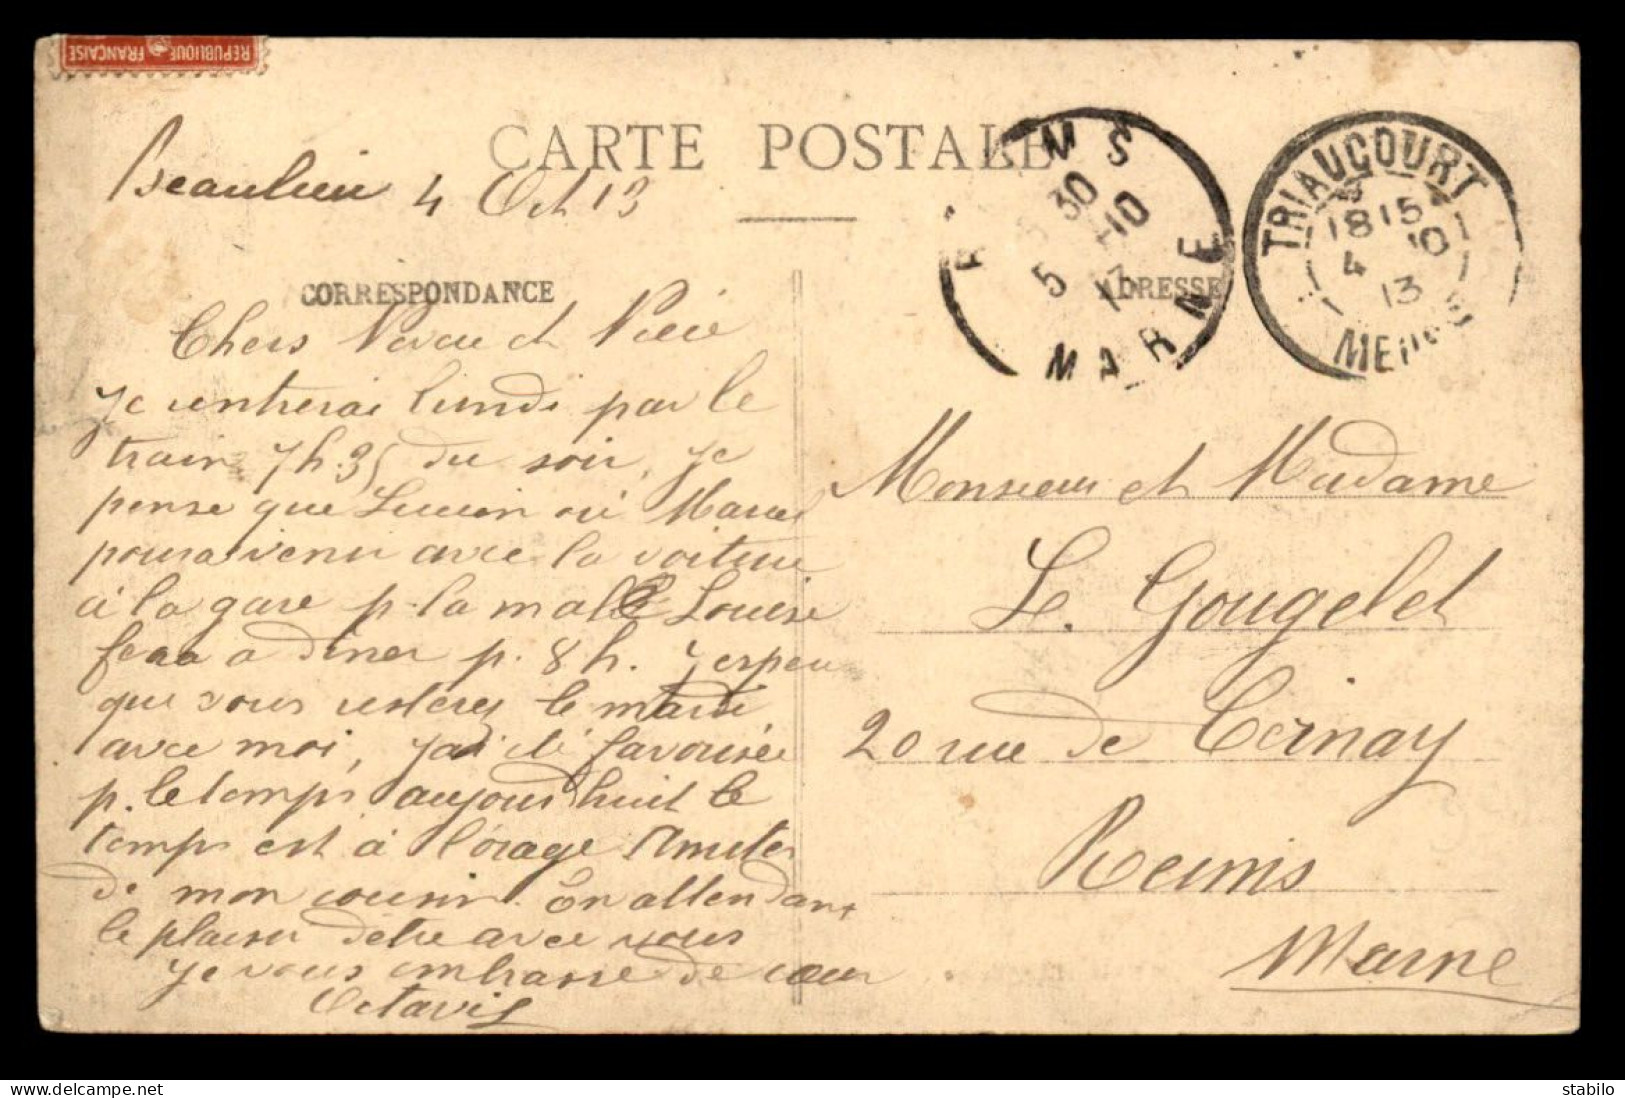 REPUBLIQUE FRANÇAISE
CARTE POSTALE
Beaulieu 4 Oct 13
CORRESPONDANCE
ADRESSE
R MS
5 30
5 -10
13
MARNE
TRIAUCOURT
1815
4 10
13
MEUSE
Chers Neveu et Nièce
Je rentrerai lundi par le
train 7h.35 du soir, je
pense que Lucien où Marcel
poura venir avec la voiture
à la gare p. la malle Louise
fera a diner p. 8h. J'espère
que vous resterez le mardi
avec moi, j'ai été favorisée
p. le temps aujourdhuit le
temps est à l'orage Amitiés
de mon cousin. En attendant
le plaisir dêtre avec vous
Je vous embrasse de cœur
Octavie
Monsieur et Madame
Le Gougelet
20 rue de Cernay
Reims
Marne
stabilo